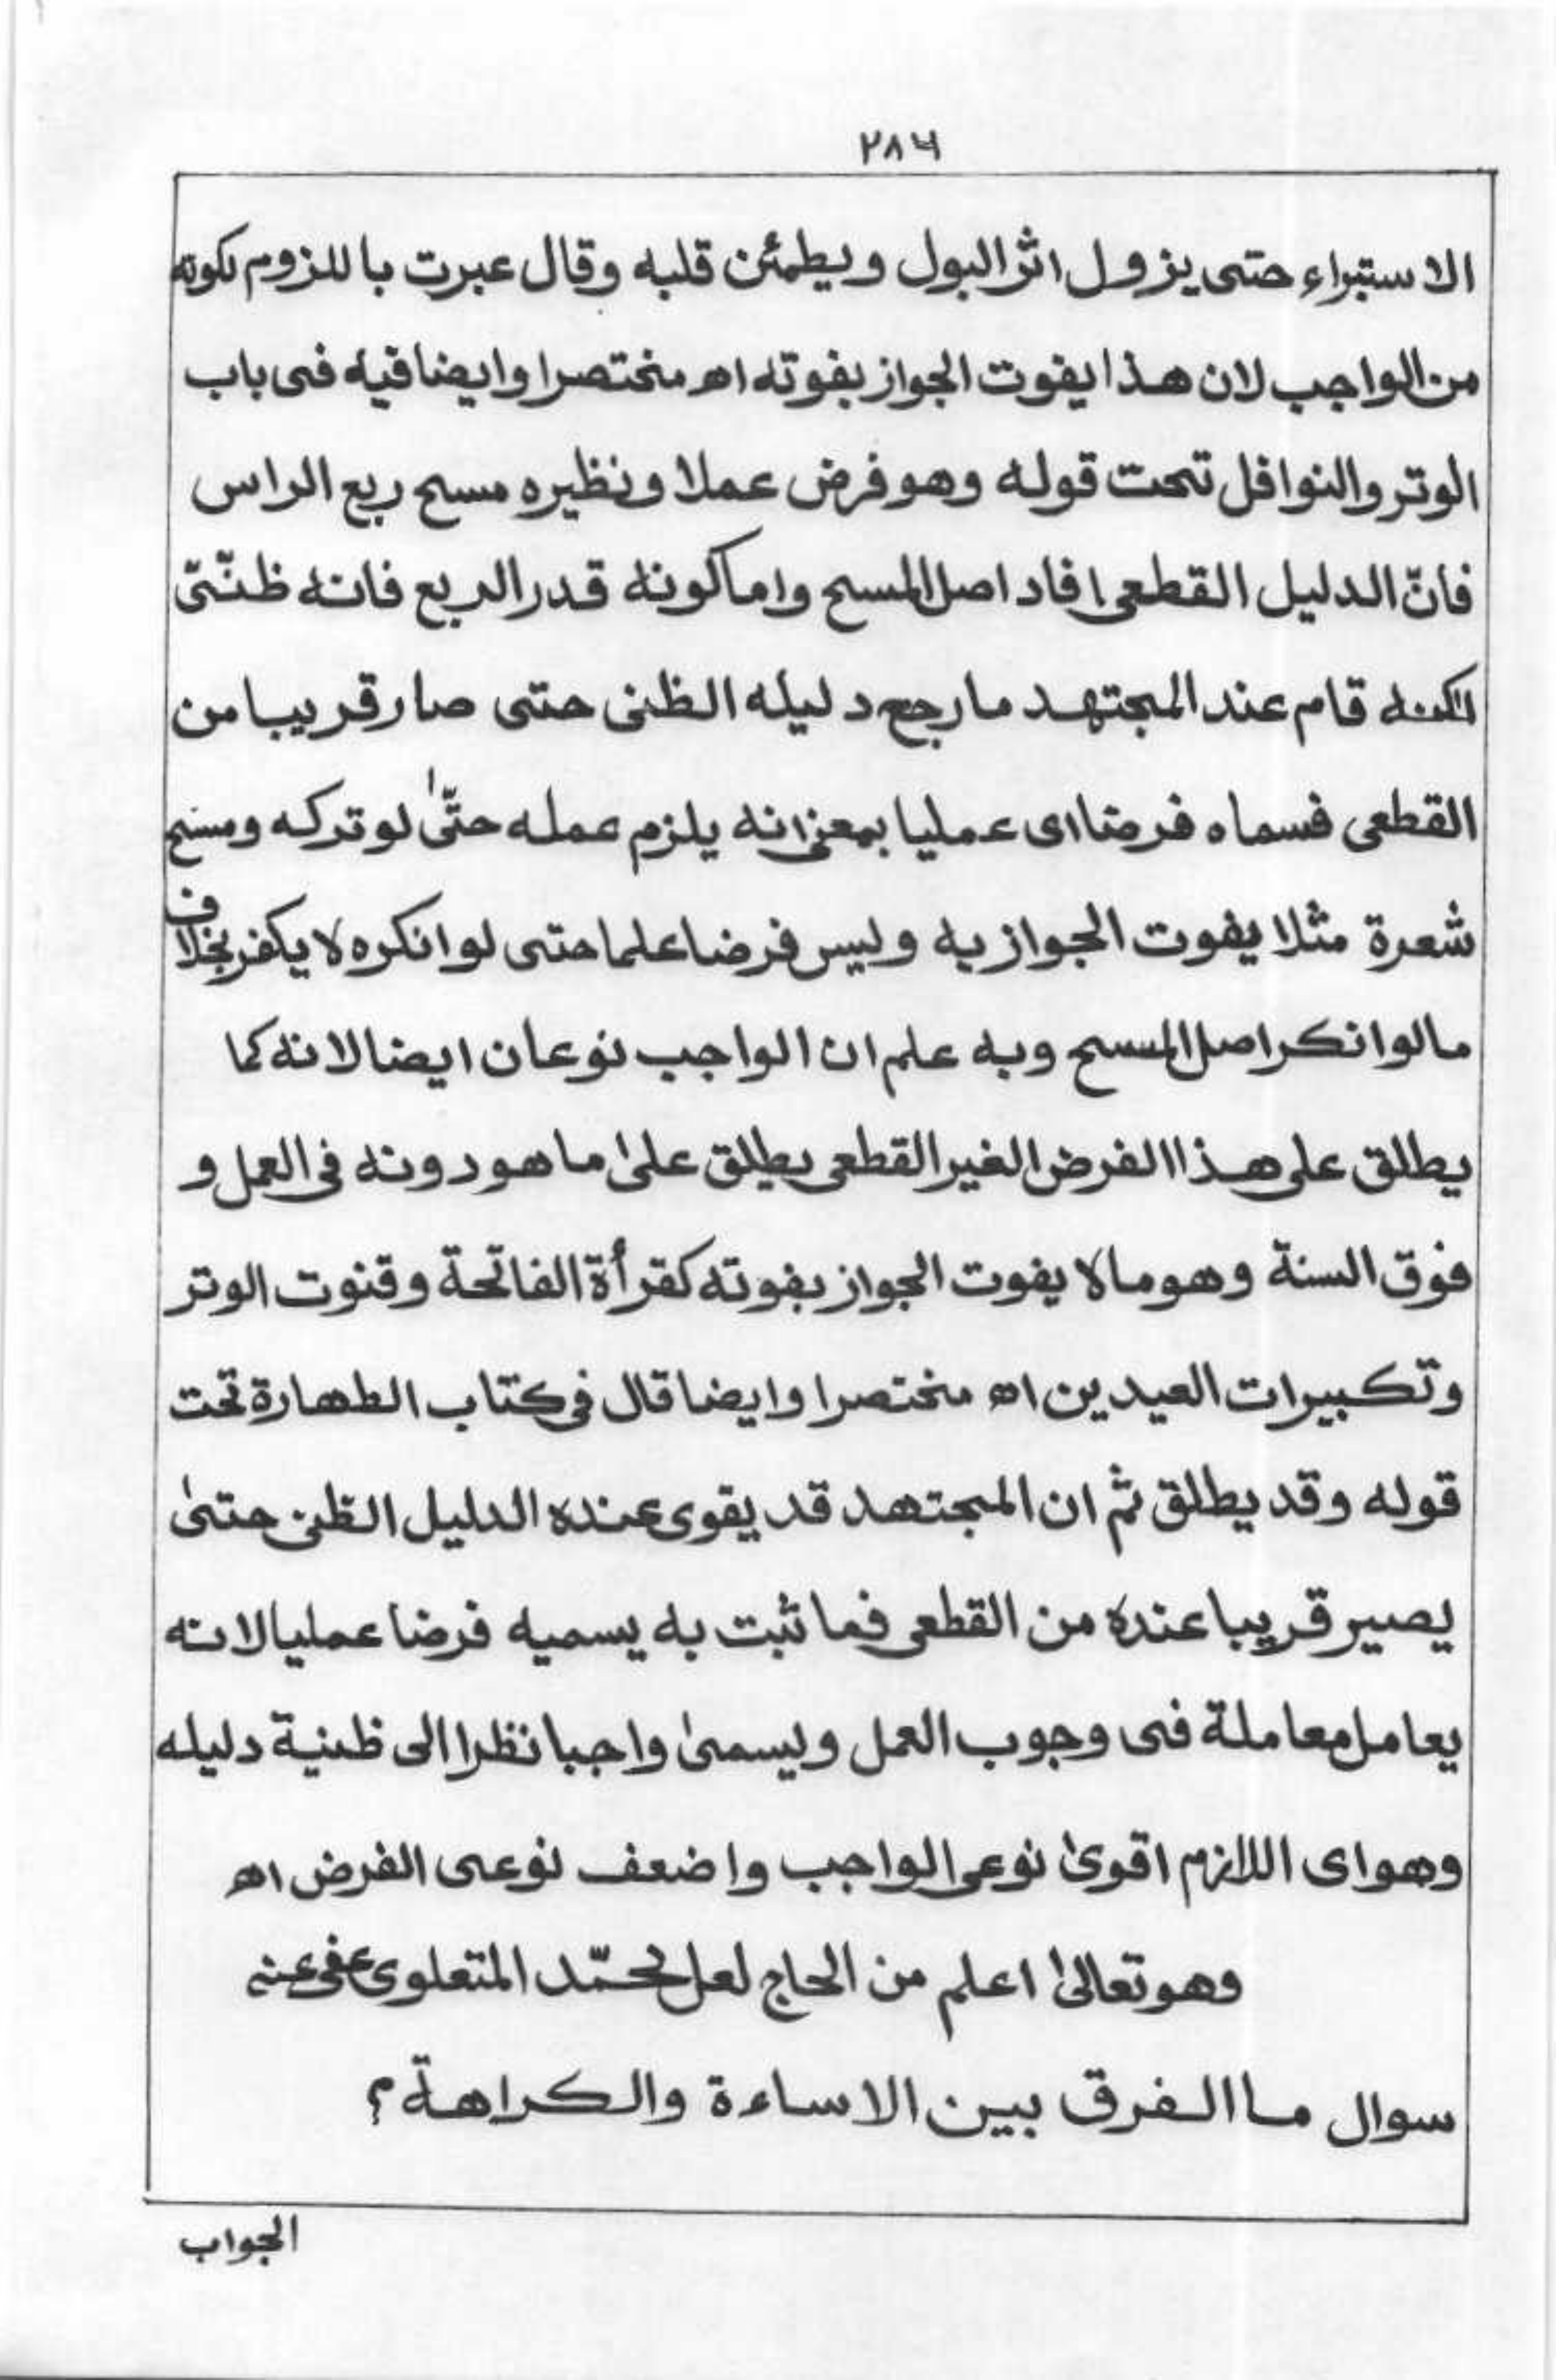 ۲۸۶
الاستبراء حتى يزول اثر البول ويطمئن قلبه وقال عبرت باللزوم لكونه
من الواجب لان هذا يفوت الجواز بفوته اھ مختصرا وايضا فيه فى باب
الوتر والنوافل تحت قوله وهو فرض عملا ونظيره مسح ربع الراس
فانّ الدليل القطعى افاد اصل المسح واما كونه قدر الربع فانه ظنّى
لكنه قام عند المجتهد ما رجح دليله الظنى حتى صار قريبا من
القطعى فسماه فرضا اى عمليا بمعنى انه يلزم عمله حتّٰى لو تركه ومسح
شعرة مثلا يفوت الجواز به وليس فرضا علما حتى لو انكره لا يكفر بخلاف
ما لو انكر اصل المسح وبه علم ان الواجب نوعان ايضا لانه كما
يطلق على هذا الفرض الغير القطعى يطلق علىٰ ما هو دونه فى العمل و
فوق السنة وهو ما لا يفوت الجواز بفوته كقرأة الفاتحة وقنوت الوتر
وتكبيرات العيدين اھ مختصرا وايضا قال فى كتاب الطهارة تحت
قوله وقد يطلق ثم ان المجتهد قد يقوى عنده الدليل الظنى حتىٰ
يصير قريبا عنده من القطعى فما ثبت به يسميه فرضا عمليا لانه
يعامل معاملة فى وجوب العمل ويسمىٰ واجبا نظرا الى ظنية دليله
وهو اى اللازم اقوىٰ نوعى الواجب واضعف نوعى الفرض اھ
وهو تعالىٰ اعلم من الحاج لعل محمّد المتعلوى عفى عنه
سوال ما الفرق بين الاساءة والكراهة؟
الجواب